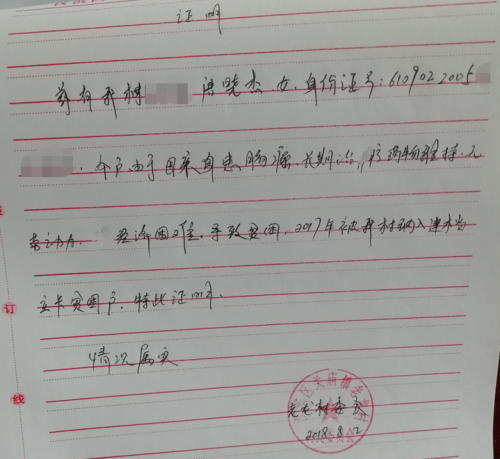 证明
兹有我村 唐晓杰 女，身份证号：610902 2005
，户由于因身患肿瘤，长期治疗，药物维持，无
劳动力。 经济困难，导致贫困，2017年被我村纳入建档
立卡贫困户，特此证明。
情况属实
村委会
2018.8.2
订
线